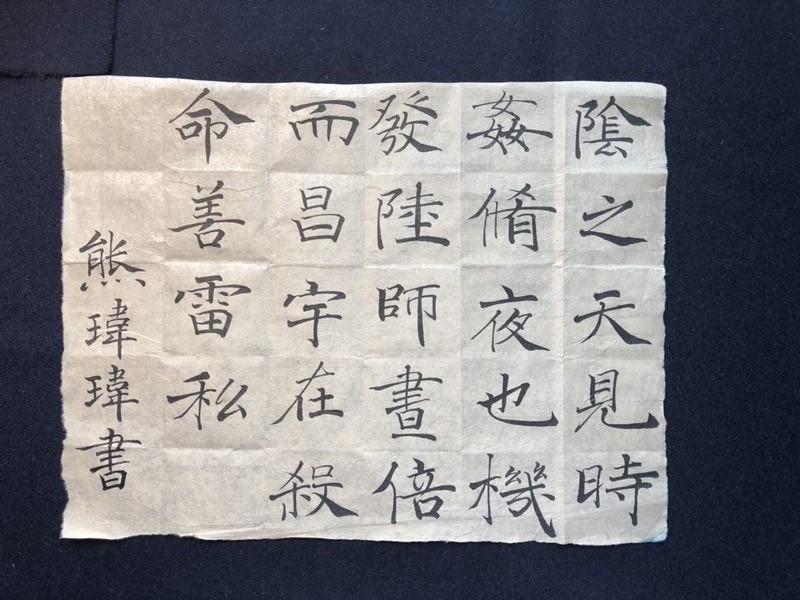 陰之天見時
姦脩夜也機
發陸師晝倍
而昌宇在殺
命善雷私
熊瑋瑋書